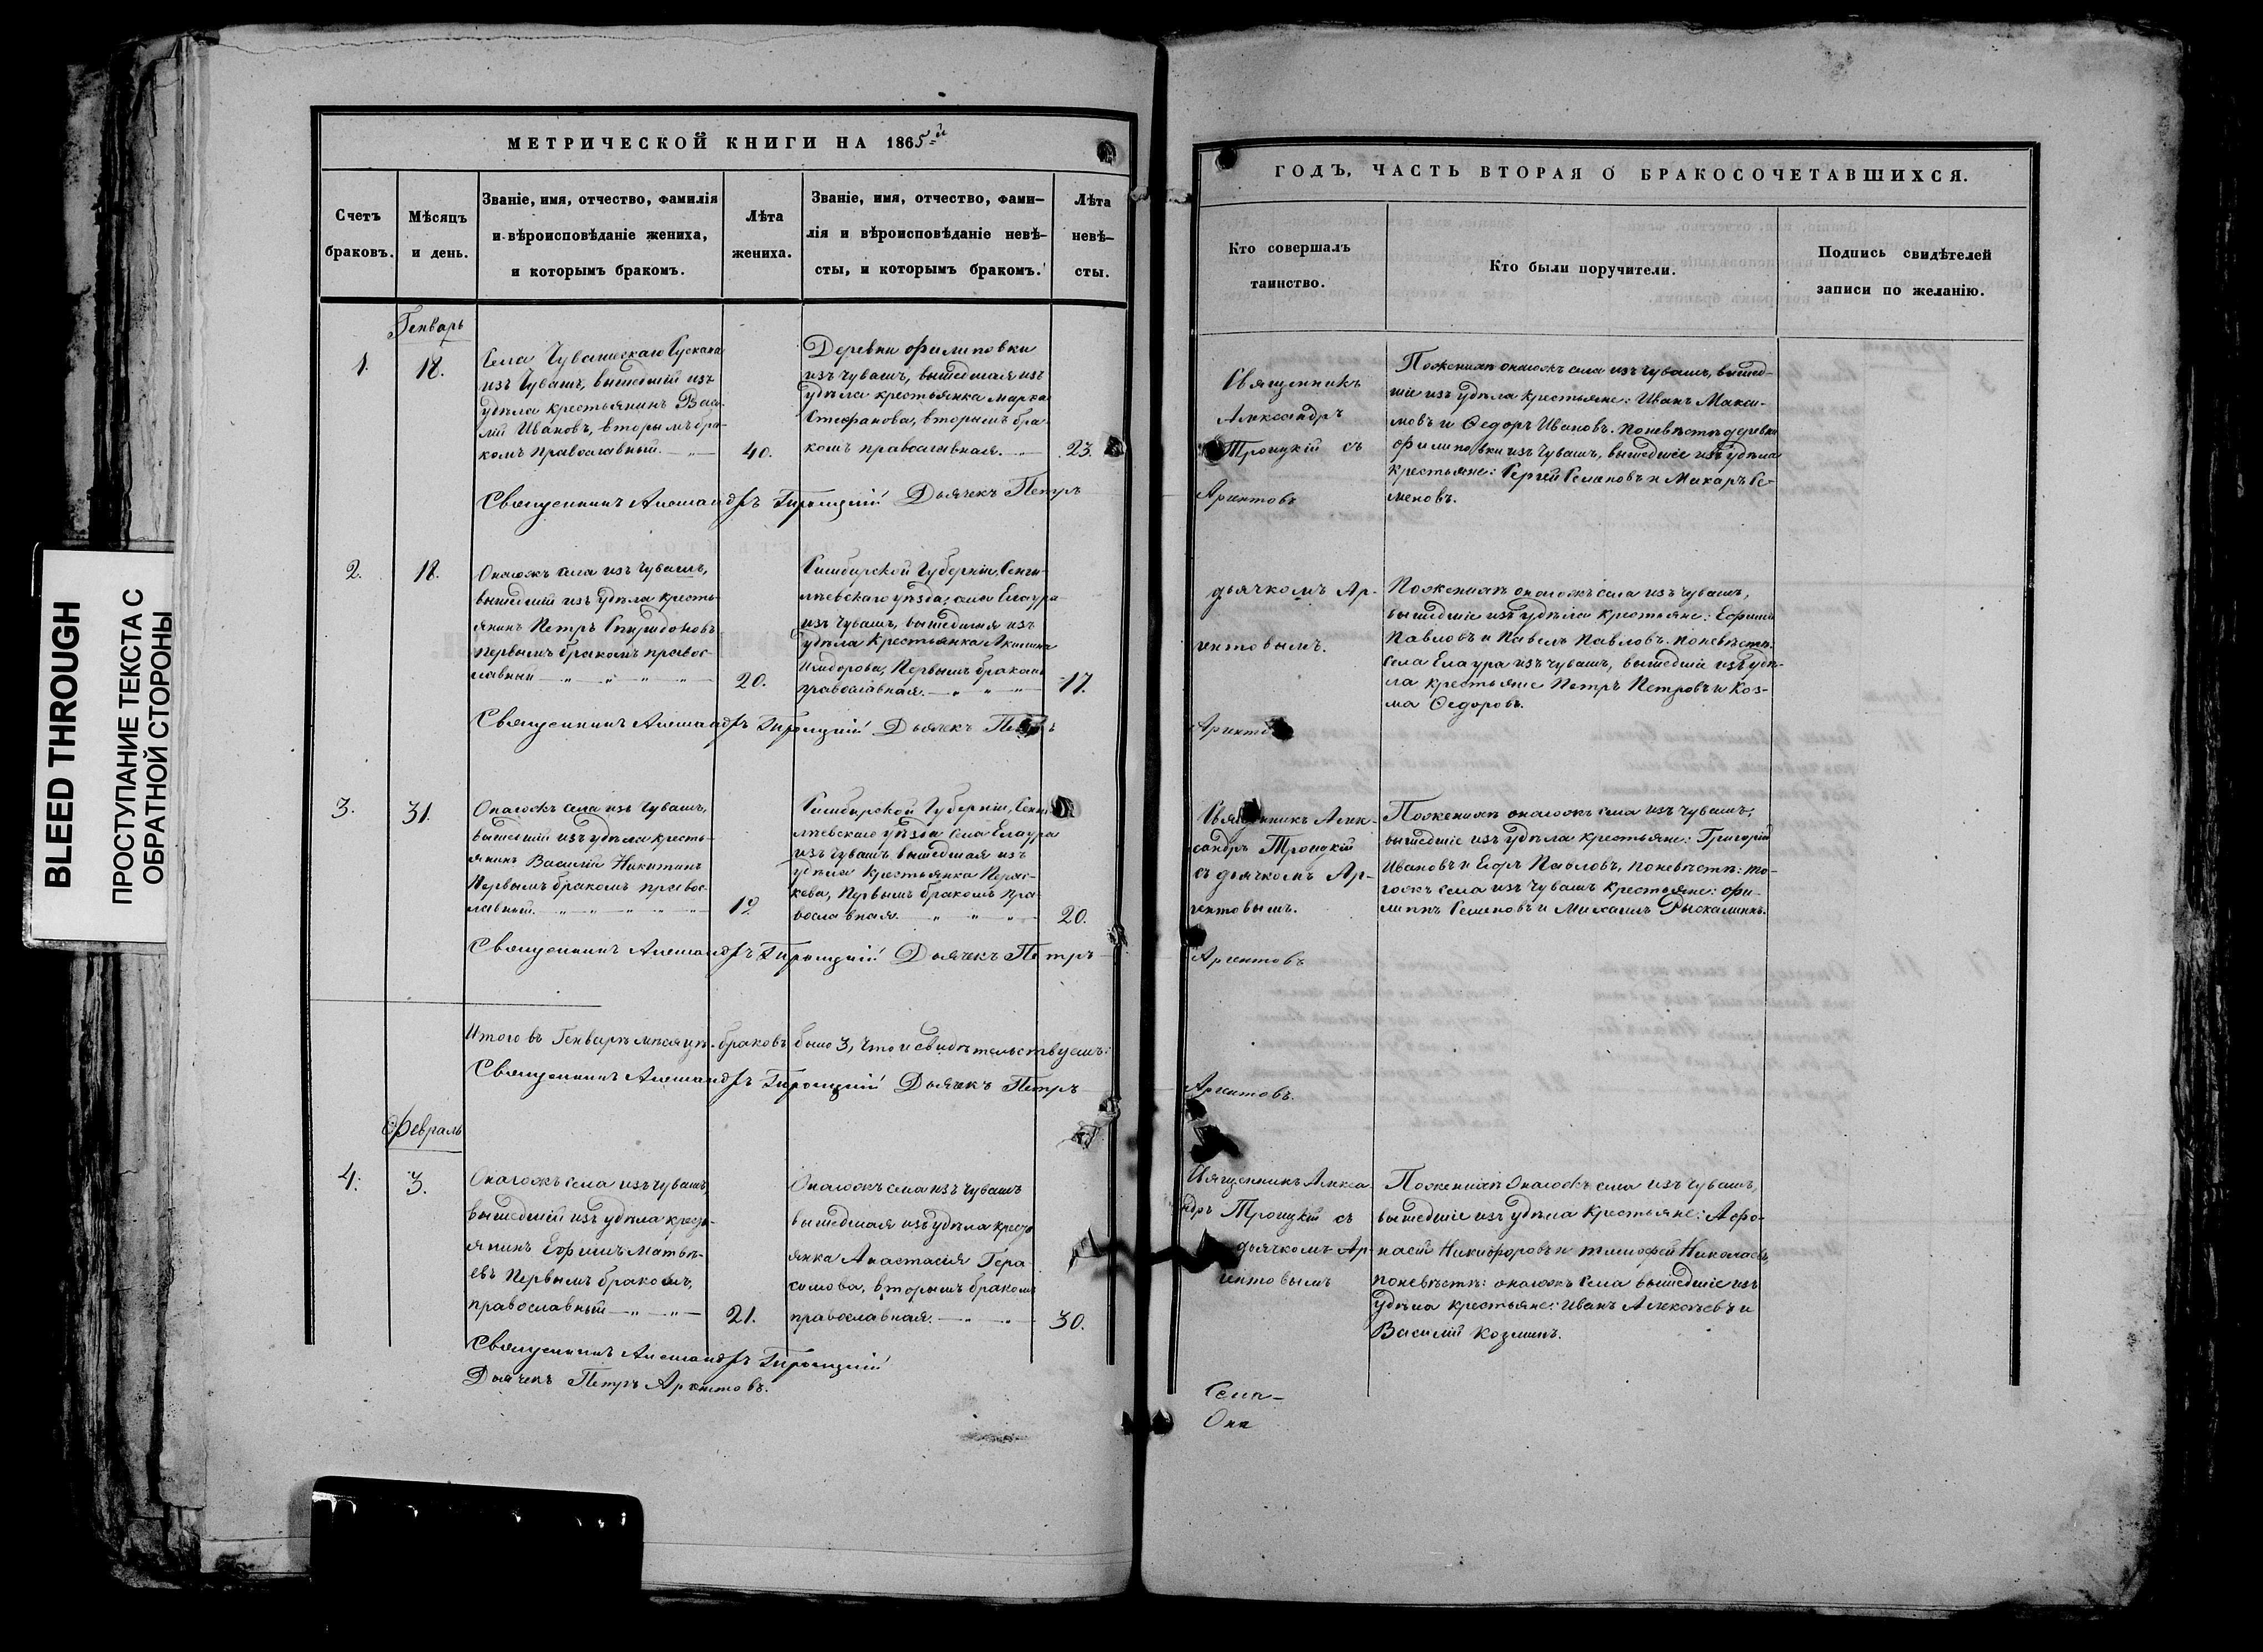 BLEED THROUGH
ПРОСТУПАНИЕ ТЕКСТА С
ОБРАТНОЙ СТОРОНЫ
МЕТРИЧЕСКОЙ КНИГИ НА 1865й
Счетъ
браковъ.
Мѣсяцъ
и день.
Званіе, имя, отчество, фамилія
и вѣроисповѣданіе жениха,
и которымъ бракомъ.
Лѣта
жениха.
Званіе, имя, отчество, фами–
лія и вѣроисповѣданіе невѣ–
сты, и которымъ бракомъ.
Лѣта
невѣ–
сты.
Генварь
1.
18.
Села Чувашскаго
изъ Чувашъ, вышедшій изъ
удѣла крестьянинъ Васи-
лій Ивановъ, вторымъ бра-
комъ православный.
40.
Деревни Филиповки
изъ чувашъ, вышедшая изъ
удѣла крестьянка Марка
Стефанова, вторымъ бра-
комъ православная.
23.
Священникъ Александръ Троицкій Дьячекъ Петръ
2.
18.
Онагожъ села изъ Чувашъ,
вышедшій изъ удѣла кресть-
янинъ Петръ Спиридоновъ
первымъ бракомъ правос-
лавный
20.
Симбирской Губерніи, Сенги-
лѣевскаго уѣзда, села Елаура
изъ Чувашъ, вышедшая изъ
удѣла крестьянка Акилина
Исидорова, Первымъ бракомъ
православная.
17.
Священникъ Александръ Троицкій Дьячекъ
3.
31.
Онагожъ села изъ Чувашъ,
вышедшій изъ удѣла кресть-
янинъ Василій Никитинъ
Первымъ бракомъ правос-
лавный.
19
Симбирской Губерніи,
лѣевскаго уѣзда села Елаура
изъ Чувашъ вышедшая изъ
удѣла крестьянка Парас-
кева, Первымъ бракомъ пра-
вославная.
20.
Священникъ Александръ Троицкій Дьячекъ Петръ
Итого въ Генварѣ мѣсяцѣ браковъ было 3, что и свидѣтельствуемъ:
Священникъ Александръ Троицкій Дьячекъ Петръ
Февраль
4.
3.
Онагожъ села изъ чувашъ,
вышедшій изъ удѣла кресть-
янинъ Ефимъ Матвѣ-
евъ Первымъ бракомъ,
православный
21.
Онагожъ села изъ Чувашъ
вышедшая изъ удѣла кресть
янка Анастасія Гера
симова, вторымъ бракомъ
православная.
30.
Священникъ Александръ Троицкій
Дьячекъ Петръ Аргентовъ.
ГОДЪ, ЧАСТЬ ВТОРАЯ О БРАКОСОЧЕТАВШИХСЯ.
Кто совершалъ
таинство.
Кто были поручители.
Подпись свидѣтелей
записи по желанію.
Священникъ
Александръ
Троицкій съ
Аргентовъ
По женихѣ онагожъ села изъ чувашъ, вышед-
шіе изъ удѣла крестьяне: Иванъ Макси-
мовъ и Ѳедоръ Ивановъ. по невѣстѣ деревни
Филиповки изъ Чувашъ, вышедшіе изъ удѣла
крестьяне: Сергей и Макаръ Се-
меновъ.
дьячкомъ Ар-
гентовымъ.
По женихѣ онагожъ села изъ чувашъ,
вышедшіе изъ удѣла крестьяне: Ефимъ
Павловъ и Павелъ Павловъ. по невѣстѣ:
села Елаура изъ чувашъ, вышедшіе изъ удѣ-
ла крестьяне Петръ Петровъ и Коз-
ма Ѳедоровъ.
Священникъ Алек-
сандръ Троицкій
съ дьячкомъ Ар-
гентовымъ.
Аргентовъ
По женихѣ онагожъ села изъ чувашъ,
вышедшіе изъ удѣла крестьяне: Григорій
Ивановъ и Егоръ Павловъ, по невѣстѣ: то-
гожъ села изъ чувашъ крестьяне: Фи-
липпъ Семеновъ и Михаилъ
Аргентовъ.
Священникъ Алекса
ндръ Троицкій съ
дьячкомъ Ар-
гентовымъ
По женихѣ Онагожъ села изъ Чувашъ,
вышедшіе изъ удѣла крестьяне: Афо-
насій Никифоровъ и Тимофей Николаевъ,
по невѣстѣ: онагожъ села вышедшіе изъ
удѣла крестьяне: Иванъ Алексѣевъ и
Василій Козминъ.